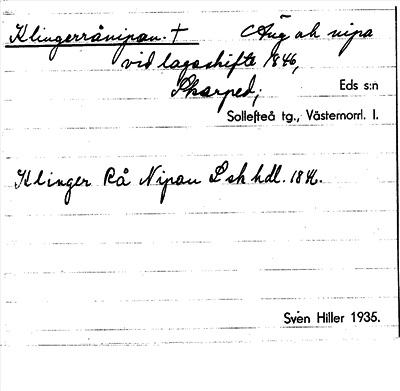 Klingerrånipan. † Äng ah nipa
vid lagaskifte 1846,
Skarped; Eds s:n
Sollefteå tg., Västernorrl. l.
Klinger Rå Nipan L sk hdl. 1846.
Sven Hiller 1935.